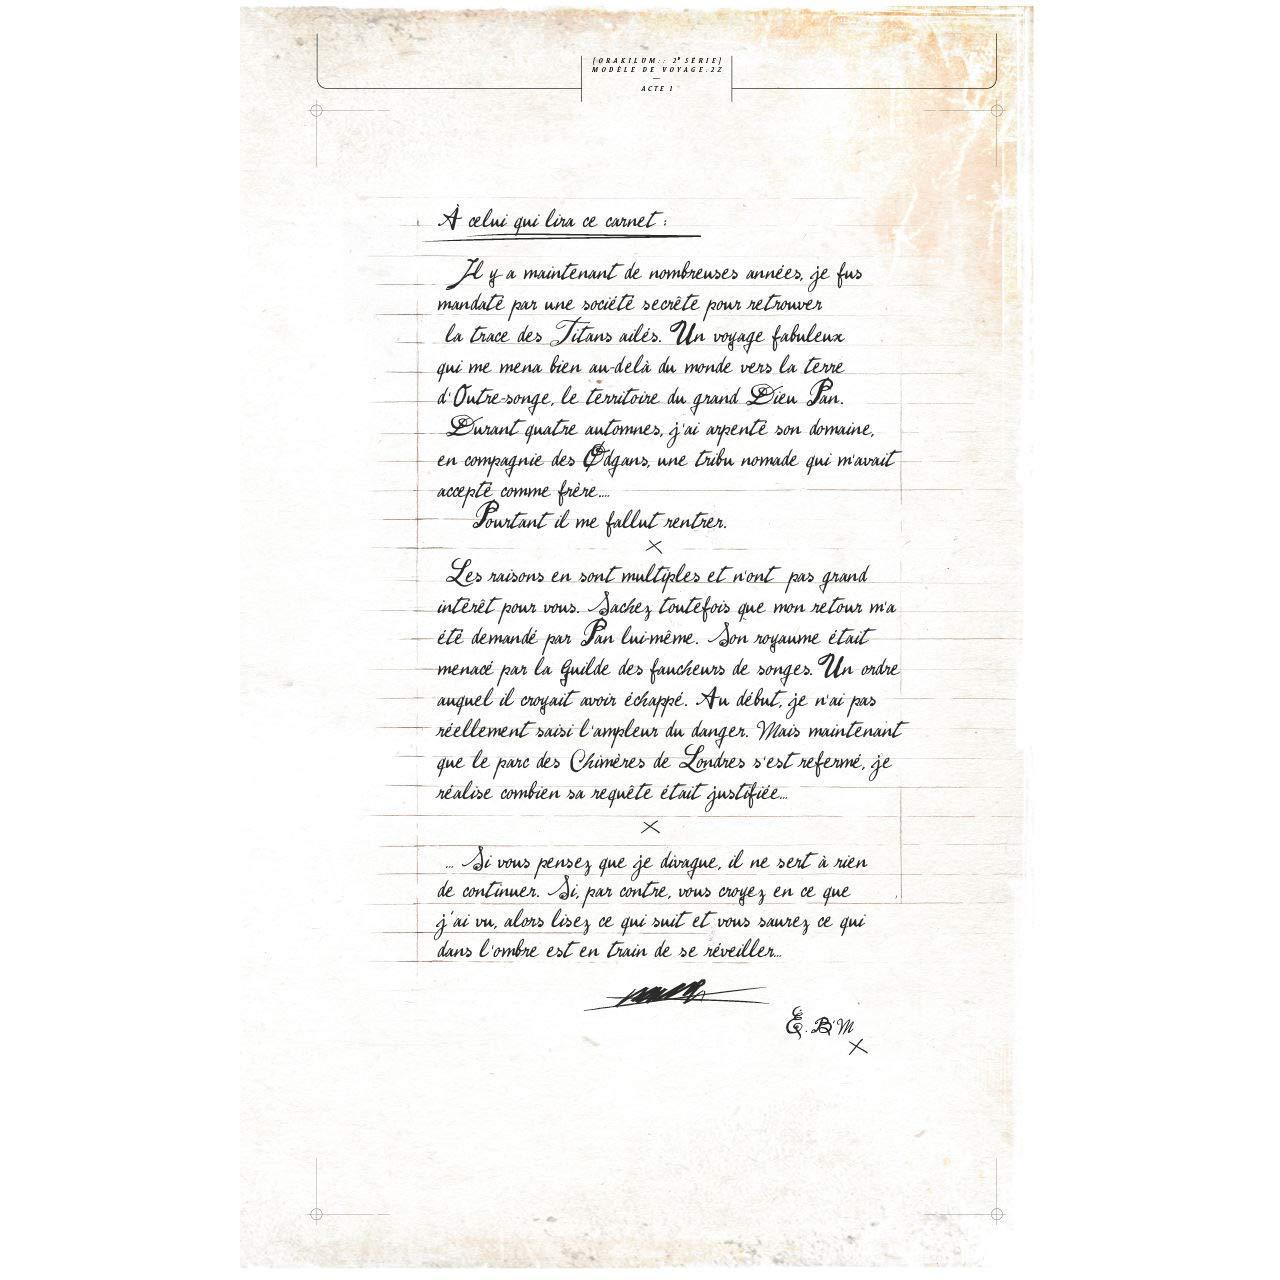 [ORAKILUM:: 2ᵉ SÉRIE]
MODÈLE DE VOYAGE.2Z
—
ACTE 1
À celui qui lira ce carnet :
Il y a maintenant de nombreuses années, je fus
mandaté par une société secrète pour retrouver
la trace des Titans ailés. Un voyage fabuleux
qui me mena bien au-delà du monde vers la terre
d'Outre-songe, le territoire du grand Dieu Pan.
Durant quatre automnes, j'ai arpenté son domaine,
en compagnie des Ødgans, une tribu nomade qui m'avait
accepté comme frère...
Pourtant il me fallut rentrer.
X
Les raisons en sont multiples et n'ont pas grand
intérêt pour vous. Sachez toutefois que mon retour m'a
été demandé par Pan lui-même. Son royaume était
menacé par la Guilde des faucheurs de songes. Un ordre
auquel il croyait avoir échappé. Au début, je n'ai pas
réellement saisi l'ampleur du danger. Mais maintenant
que le parc des Chimères de Londres s'est refermé, je
réalise combien sa requête était justifiée...
X
... Si vous pensez que je divague, il ne sert à rien
de continuer. Si, par contre, vous croyez en ce que
j'ai vu, alors lisez ce qui suit et vous saurez ce qui
dans l'ombre est en train de se réveiller...
É. B'M
X